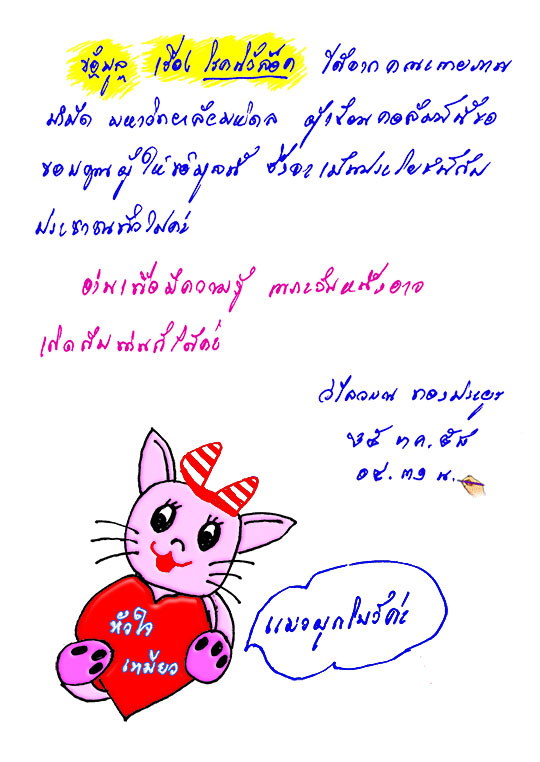 ข้อมูล เรื่อง โรคหัวล็อค ได้จาก คณะกายภาพ
บำบัด มหาวิทยาลัยมหิดล ผู้เขียนคอลัมน์นี้ขอ
ขอบคุณผู้ให้ข้อมูลนี้ ซึ่งจะเป็นประโยชน์กับ
ประชาชนทั่วไปค่ะ
อ่านเพื่อมีความรู้ เพราะวันหนึ่งอาจ
เกิดกับท่านก็ได้ค่ะ
วิไลวรรณ
๒๕ ๕๘
๑๕.๓๑ น.
หัวใจ
เหมียว
แมวผูกโบว์ค่ะ